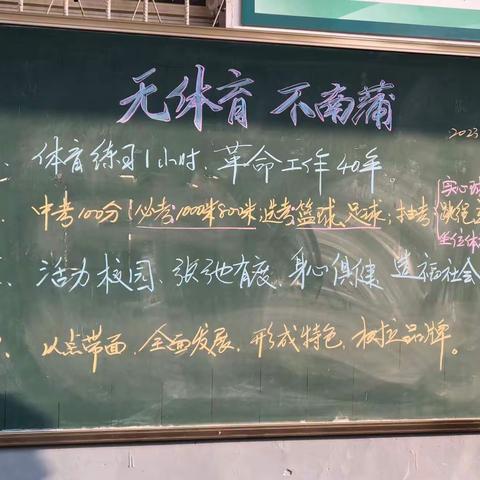 无体育 不南蒲
2023
、体育练习1小时、革命工作40年。
、中考100分(必考1000米800米选考篮球、足球；抽考(实心球 跳绳 坐位体
、活力校园、张弛有度、身心俱健 造福社会
、以点带面、全面发展、形成特色、树立品牌。